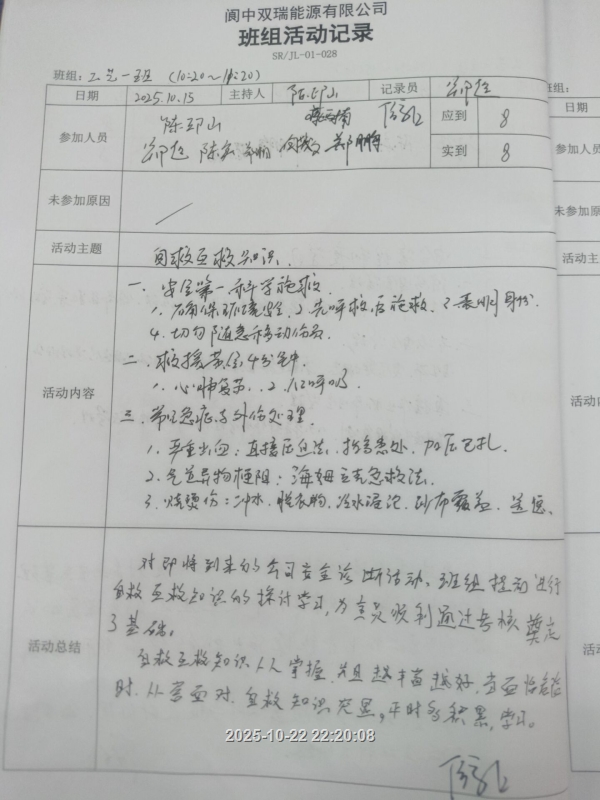 阆中双瑞能源有限公司
班组活动记录
SR/JL-01-028
班组: 工艺一班 (10:20~14:20)
日期 2025.10.15 主持人 陈邛山 记录员
参加人员 陈邛山 应到 8
郑鹏 实到 8
未参加原因 /
活动主题 自救互救知识.
活动内容
一. 安全第一 科学施救
1. 确保环境安全 2. 先呼救后施救 3. 表明身份
4. 切勿随意移动伤员
二. 救援黄金4分钟.
1. 心肺复苏. 2. 人工呼吸.
三. 常见急症与外伤处理.
1. 严重出血: 直接压迫法. 抬高患处. 加压包扎.
2. 气道异物梗阻: 海姆立克急救法.
3. 烧烫伤: 冲水. 脱衣物. 冷水浸泡. 纱布覆盖. 送医.
活动总结
对即将到来的公司安全诊断活动、班组提前进行
自救互救知识的探讨学习, 为言员顺利通过考核奠定
了基础。
自救互救知识人人掌握, 并且越丰富越好, 当面临危险
时. 从容面对. 自救知识充裕, 平时多积累, 学习。
2025-10-22 22:20:08
班组:
日期
参加人员
未参加原
活动主
活动内
活动总